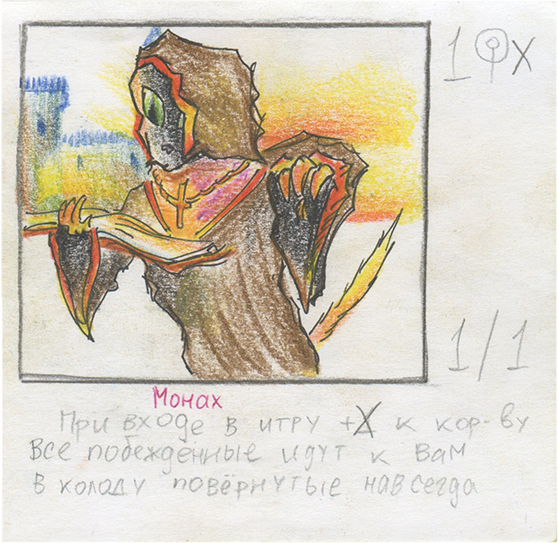 1 X
1/1
Монах
При входе в игру +X к кор-ву
Все побежденные идут к вам
в колоду повёрнутые навсегда